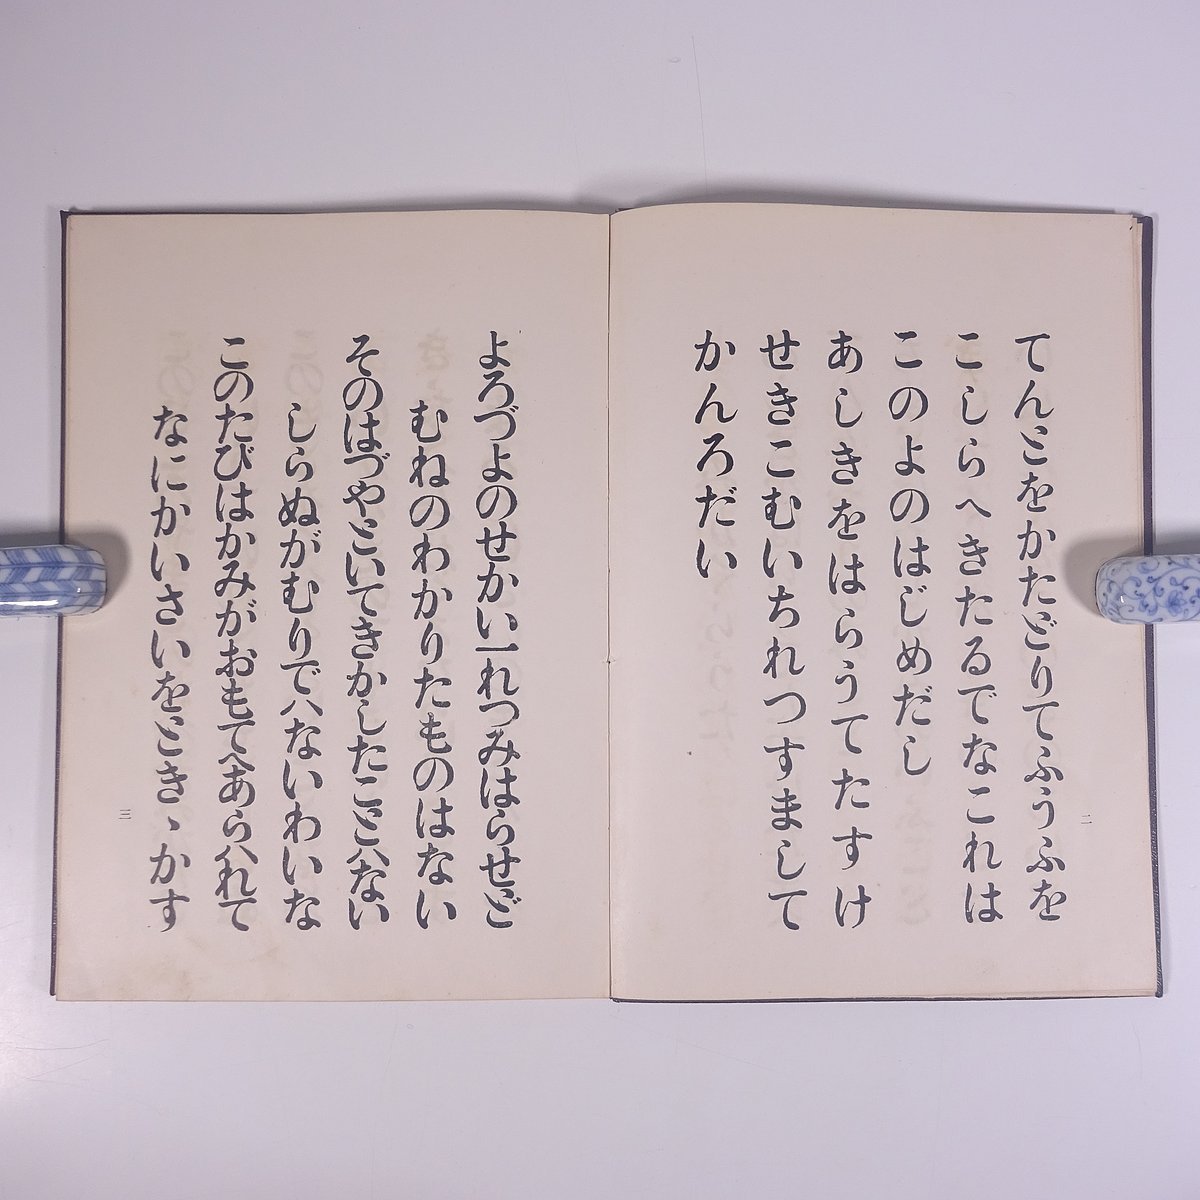 てんとをかたどりてふうふを
こしらへきたるでなこれは
このよのはじめだし
あしきをはらうてたすけ
せきこむいちれつすまして
かんろだい
二
よろづよのせかい一れつみはらせど
むねのわかりたものはない
そのはづやといてきかしたことハない
しらぬがむりでハないわいな
このたびはかみがおもてへあらハれて
なにかいさいをときゝかす
三